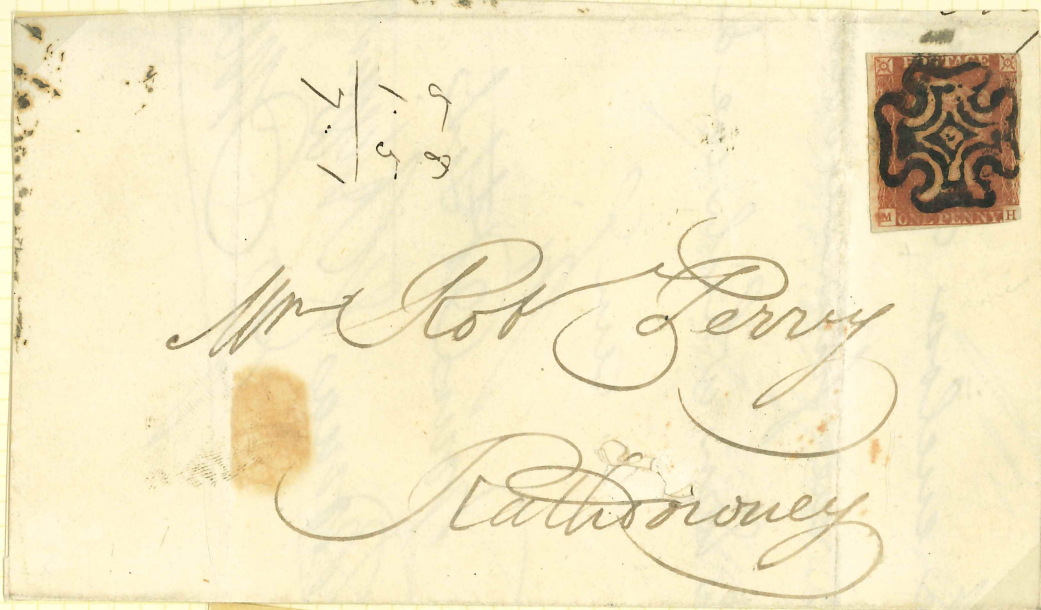 POSTAGE
M ONE PENNY H
Mr Rob Perry
Rathdowney